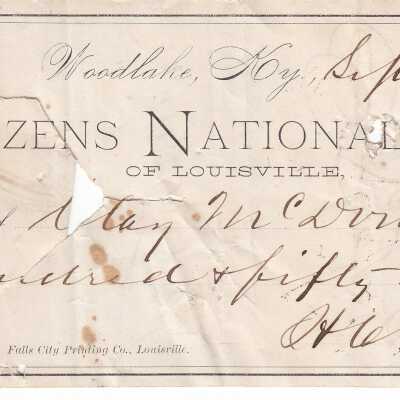 Woodlake, Ky., Sep
ZENS NATIONAL
OF LOUISVILLE,
Clay McDon
ndred & fifty
H C
Falls City Printing Co., Louisville.